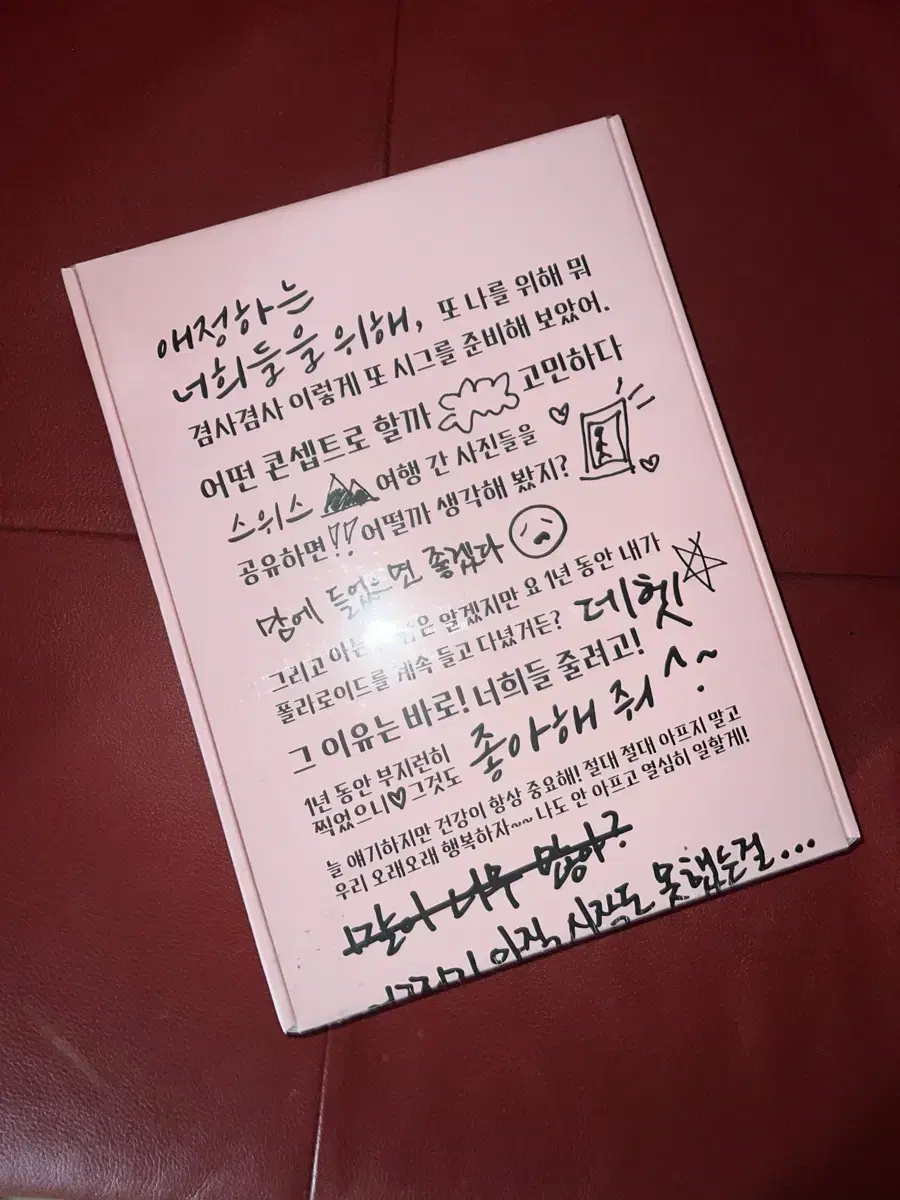 애정하는
너희들을 위해, 또 나를 위해 뭐
겸사겸사 이렇게 또 시그를 준비해 보았어.
어떤 콘셉트로 할까 고민하다
스위스 여행 간 사진들을
공유하면!! 어떨까 생각해 봤지?
맘에 들었으면 좋겠다
그리고 아는 알겠지만 요 1년 동안 내가
폴라로이드를 계속 들고 다녔거든? 데헷
그 이유는 바로! 너희들 줄려고!
1년 동안 부지런히
찍었으니♥그것도 좋아해 줘^~
늘 얘기하지만 건강이 항상 중요해! 절대 절대 아프지 말고
우리 오래오래 행복하자~~ 나도 안 아프고 열심히 일할게!
말이 너무 많아?
아직 시작도 못했는걸...